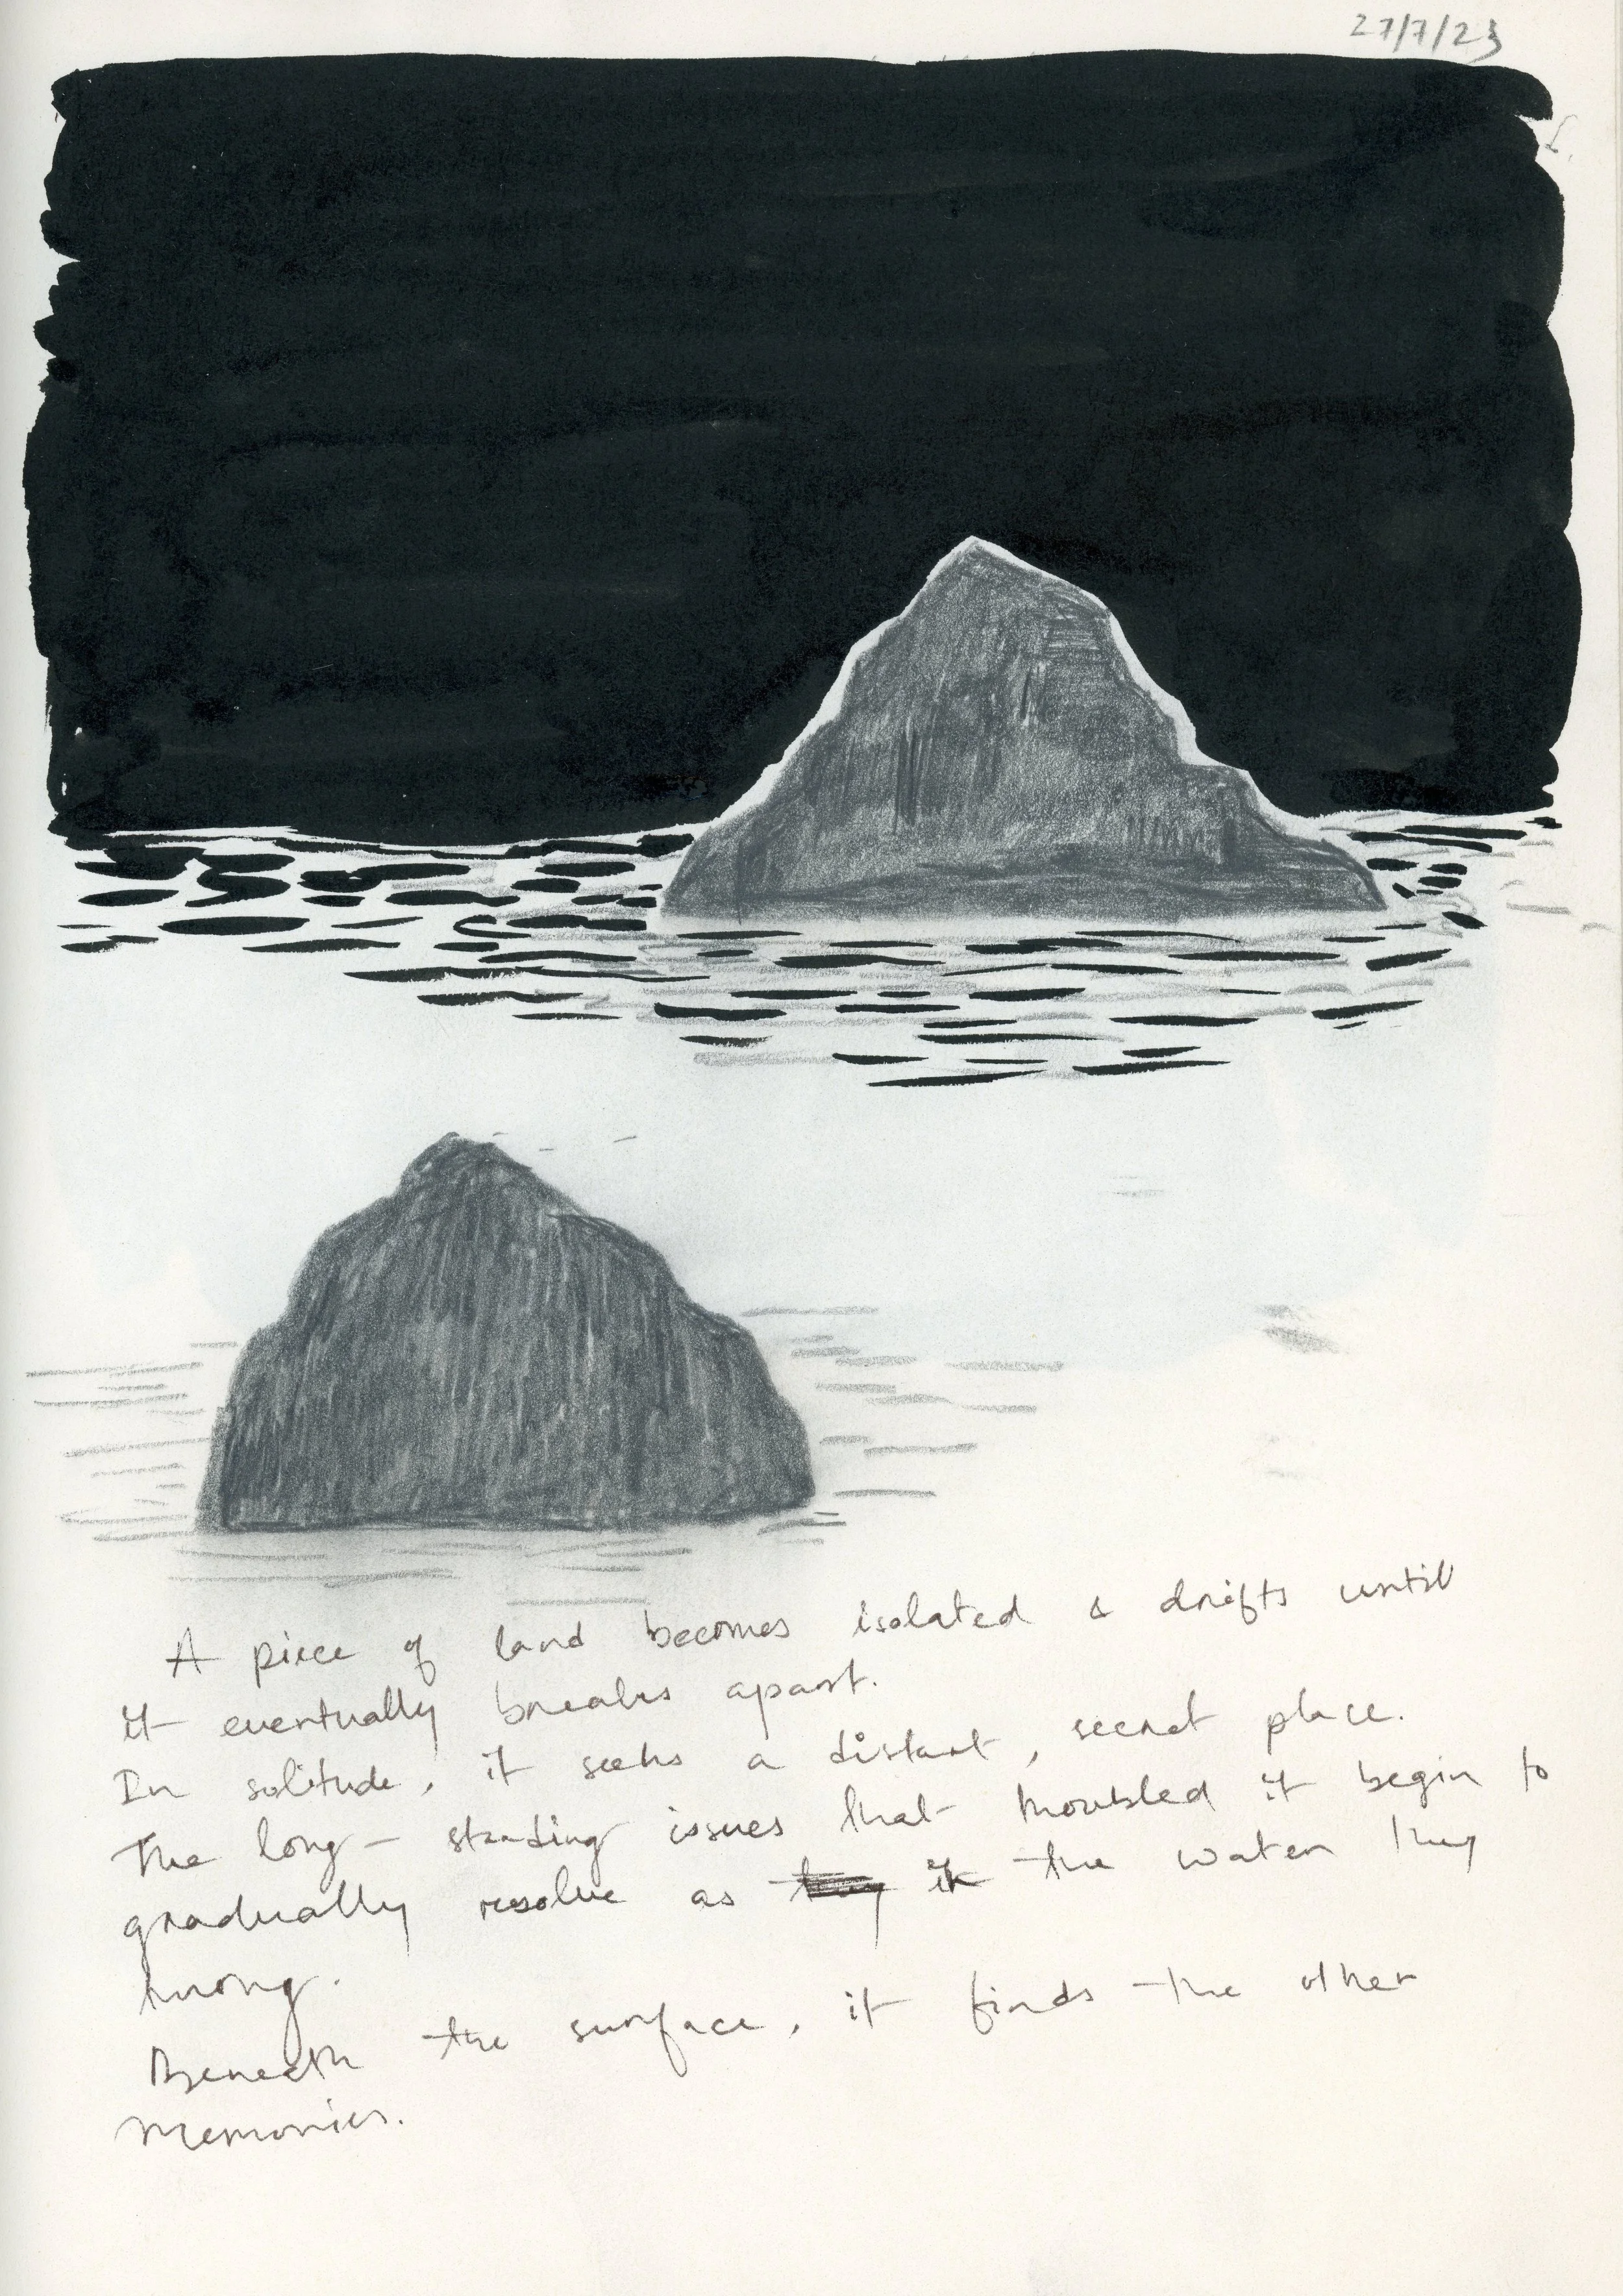 27/7/23
A piece of land becomes isolated & drifts until
it eventually breaks apart.
In solitude, it seeks a distant, secret place.
The long-standing issues that troubled it begin to
gradually resolve as the water they
throng.
Beneath the surface, it finds the other
memories.